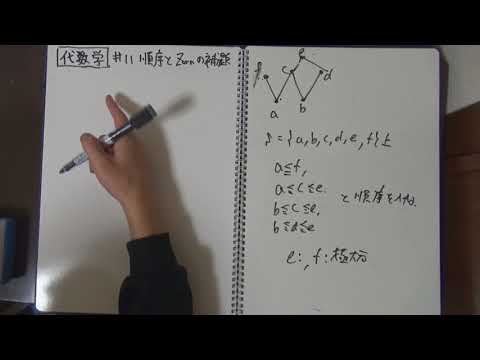 代数学 #11 順序とZornの補題
e
f c d
a b
S = {a,b,c,d,e,f}上
a≦f,
a≦c≦e,
b≦c≦e, と順序を入れる.
b≦d≦e
e:, f:極大元